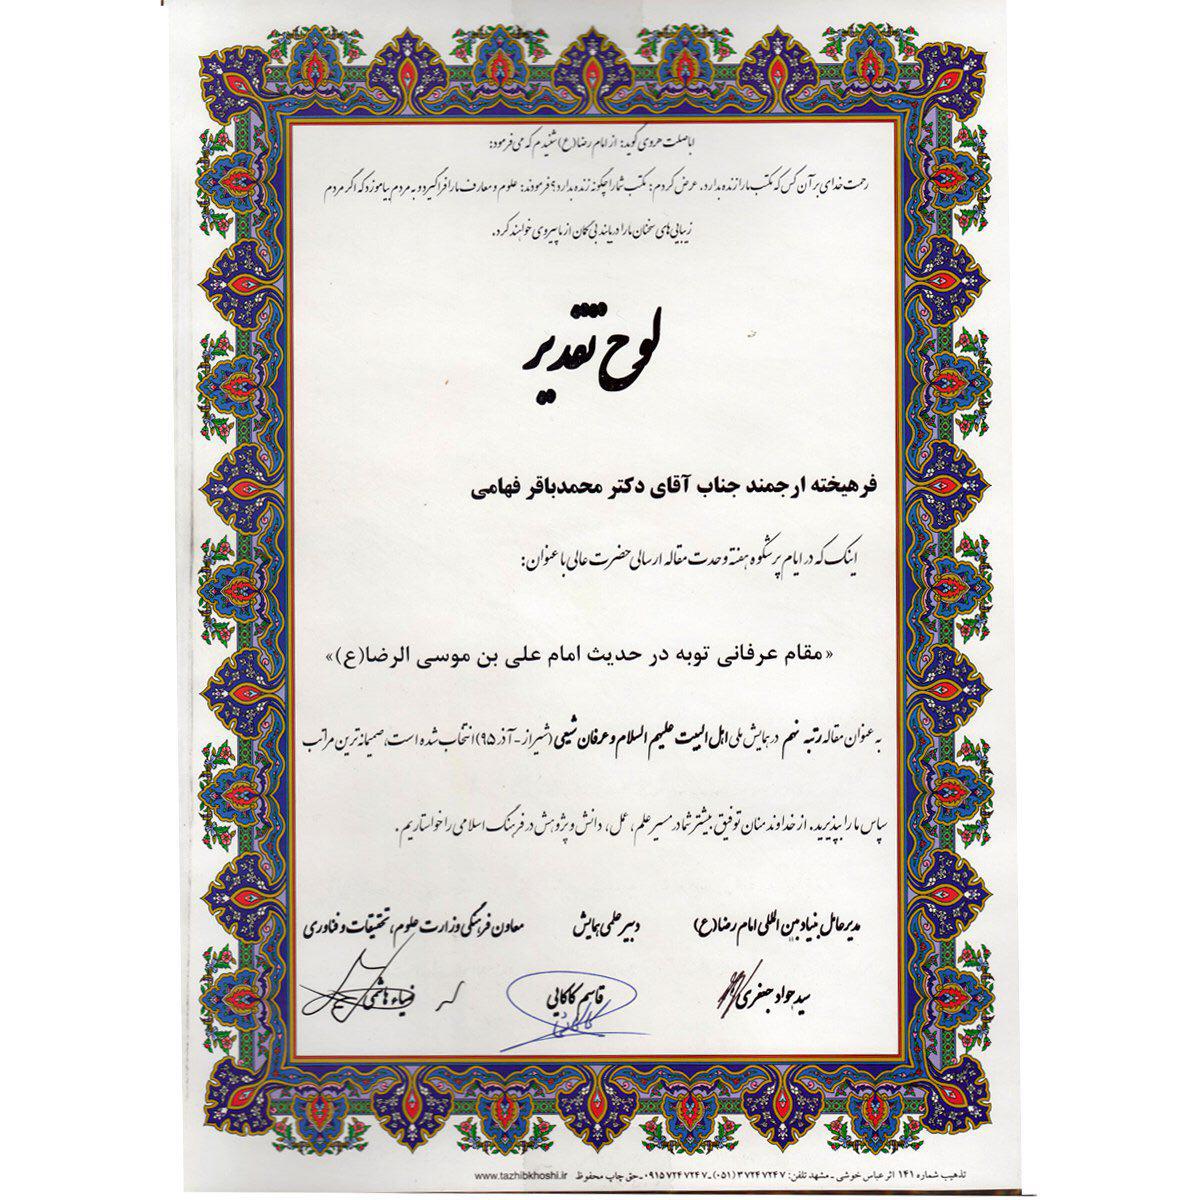 اباصلت هروی گوید: از امام رضا(ع) شنیدم که می فرمود:
رحمت خدای بر آن کس که مکتب ما را زنده بدارد. عرض کردم: مکتب شما را چگونه زنده بدارد؟ فرمودند: علوم و معارف ما را فراگیرد و به مردم بیاموزد که اگر مردم
زیبایی های سخنان ما را دریابند بی گمان از ما پیروی خواهند کرد.
لوح تقدیر
فرهیخته ارجمند جناب آقای دکتر محمدباقر فهامی
اینک که در ایام پرشکوه هفته وحدت مقاله ارسالی حضرت عالی با عنوان:
«مقام عرفانی توبه در حدیث امام علی بن موسی الرضا(ع)»
به عنوان مقاله رتبه نهم در همایش ملی اهل البیت علیهم السلام و عرفان شیعی (شیراز - آذر ۹۵) انتخاب شده است، صمیمانه ترین مراتب
سپاس ما را بپذیرید. از خداوند منان توفیق بیشتر شما در مسیر علم، عمل، دانش و پژوهش در فرهنگ اسلامی را خواستاریم.
مدیرعامل بنیاد بین المللی امام رضا(ع) دبیر علمی همایش معاون فرهنگی وزارت علوم، تحقیقات و فناوری
سید جواد جعفری قاسم کاکایی ضیاء هاشمی
تذهیب شماره ۱۴۱ اثر عباس خوشی - مشهد تلفن: ۳۷۲۴۷۲۴۷ (۰۵۱) - ۰۹۱۵۷۲۴۷۲۴۷ - حق چاپ محفوظ www.tazhibkhoshi.ir